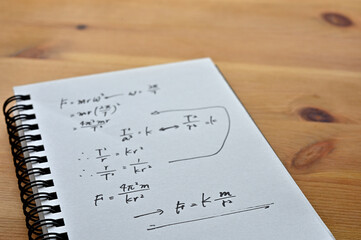 F = mrω² ← ω = 2π/T
= mr(2π/T)²
= 4π²mr/T²
T²/r³ = k ↔ T²/r³ = k
∴ T²/r = kr²
∴ r/T² = 1/kr²
F = 4π²m/kr²
→ F = k m/r²